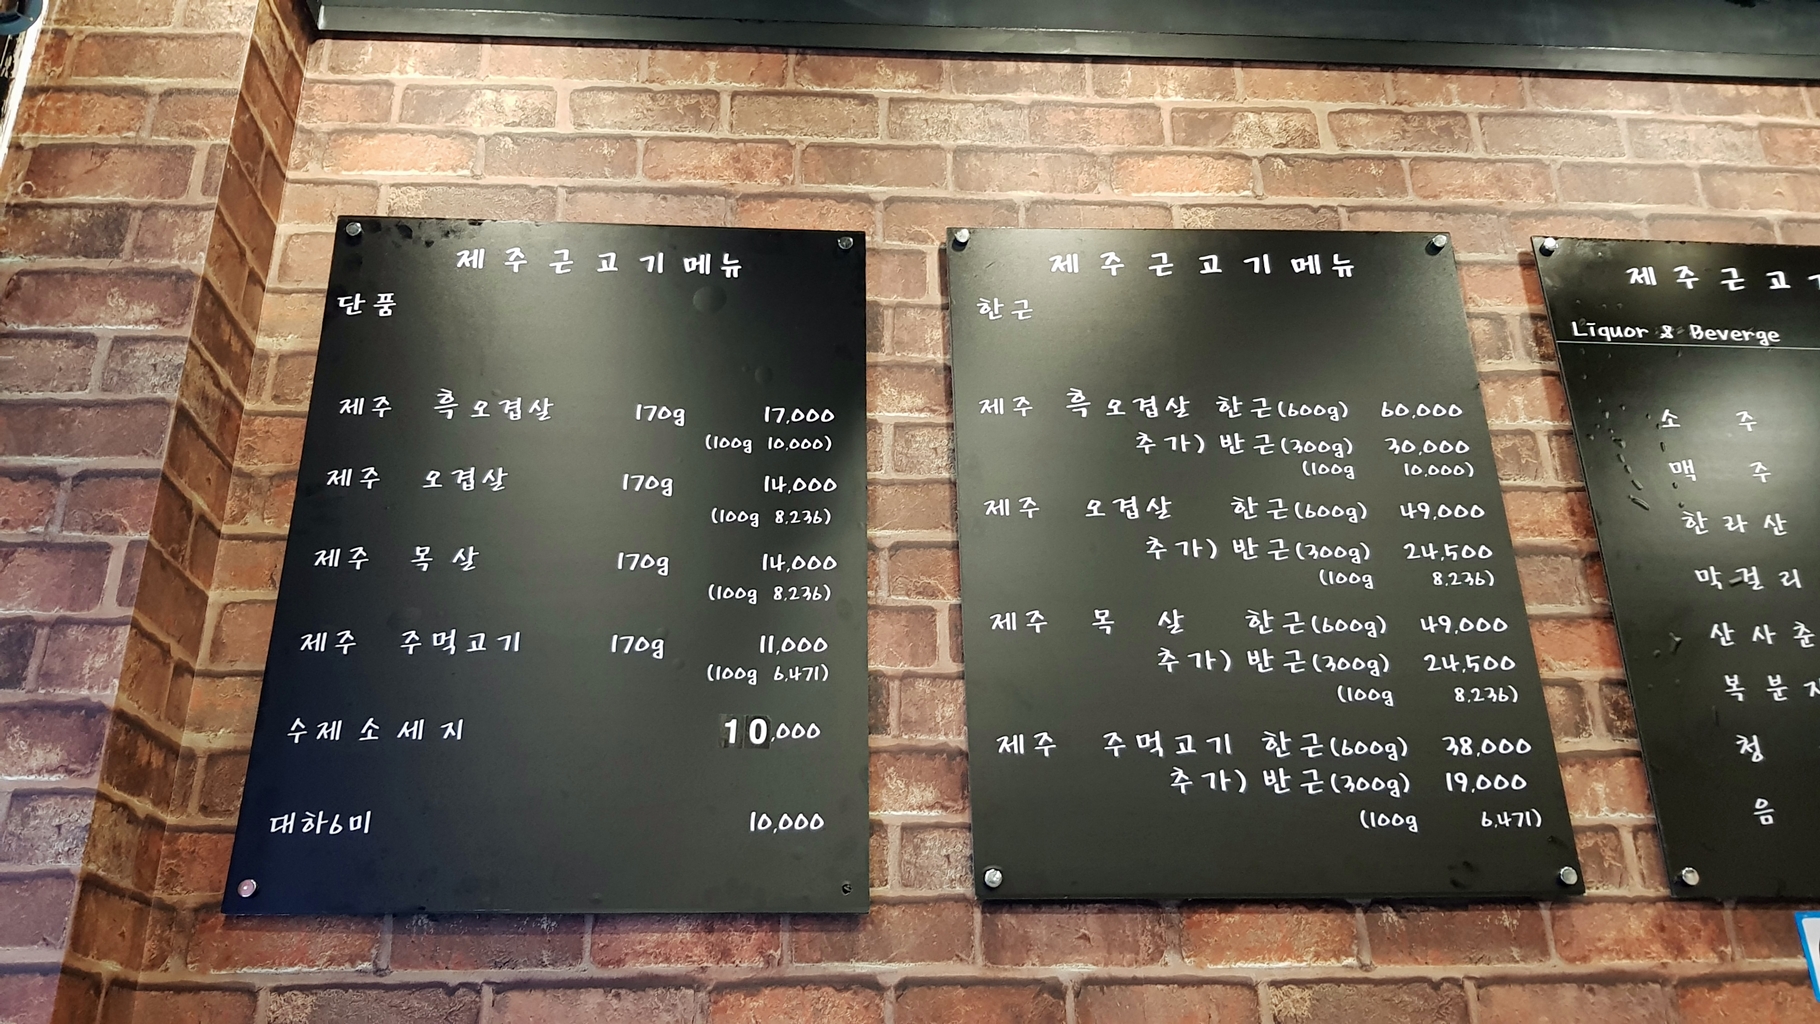 제주근고기메뉴
단품
제주 흑오겹살 170g 17,000
(100g 10,000)
제주 오겹살 170g 14,000
(100g 8,236)
제주 목살 170g 14,000
(100g 8,236)
제주 주먹고기 170g 11,000
(100g 6,471)
수제소세지 10,000
대하6미 10,000
제주근고기메뉴
한근
제주 흑오겹살 한근(600g) 60,000
추가) 반근(300g) 30,000
(100g 10,000)
제주 오겹살 한근(600g) 49,000
추가) 반근(300g) 24,500
(100g 8,236)
제주 목살 한근(600g) 49,000
추가) 반근(300g) 24,500
(100g 8,236)
제주 주먹고기 한근(600g) 38,000
추가) 반근(300g) 19,000
(100g 6,471)
제주근고
Liquor & Beverge
소주
맥주
한라산
막걸리
산사춘
복분
청
음